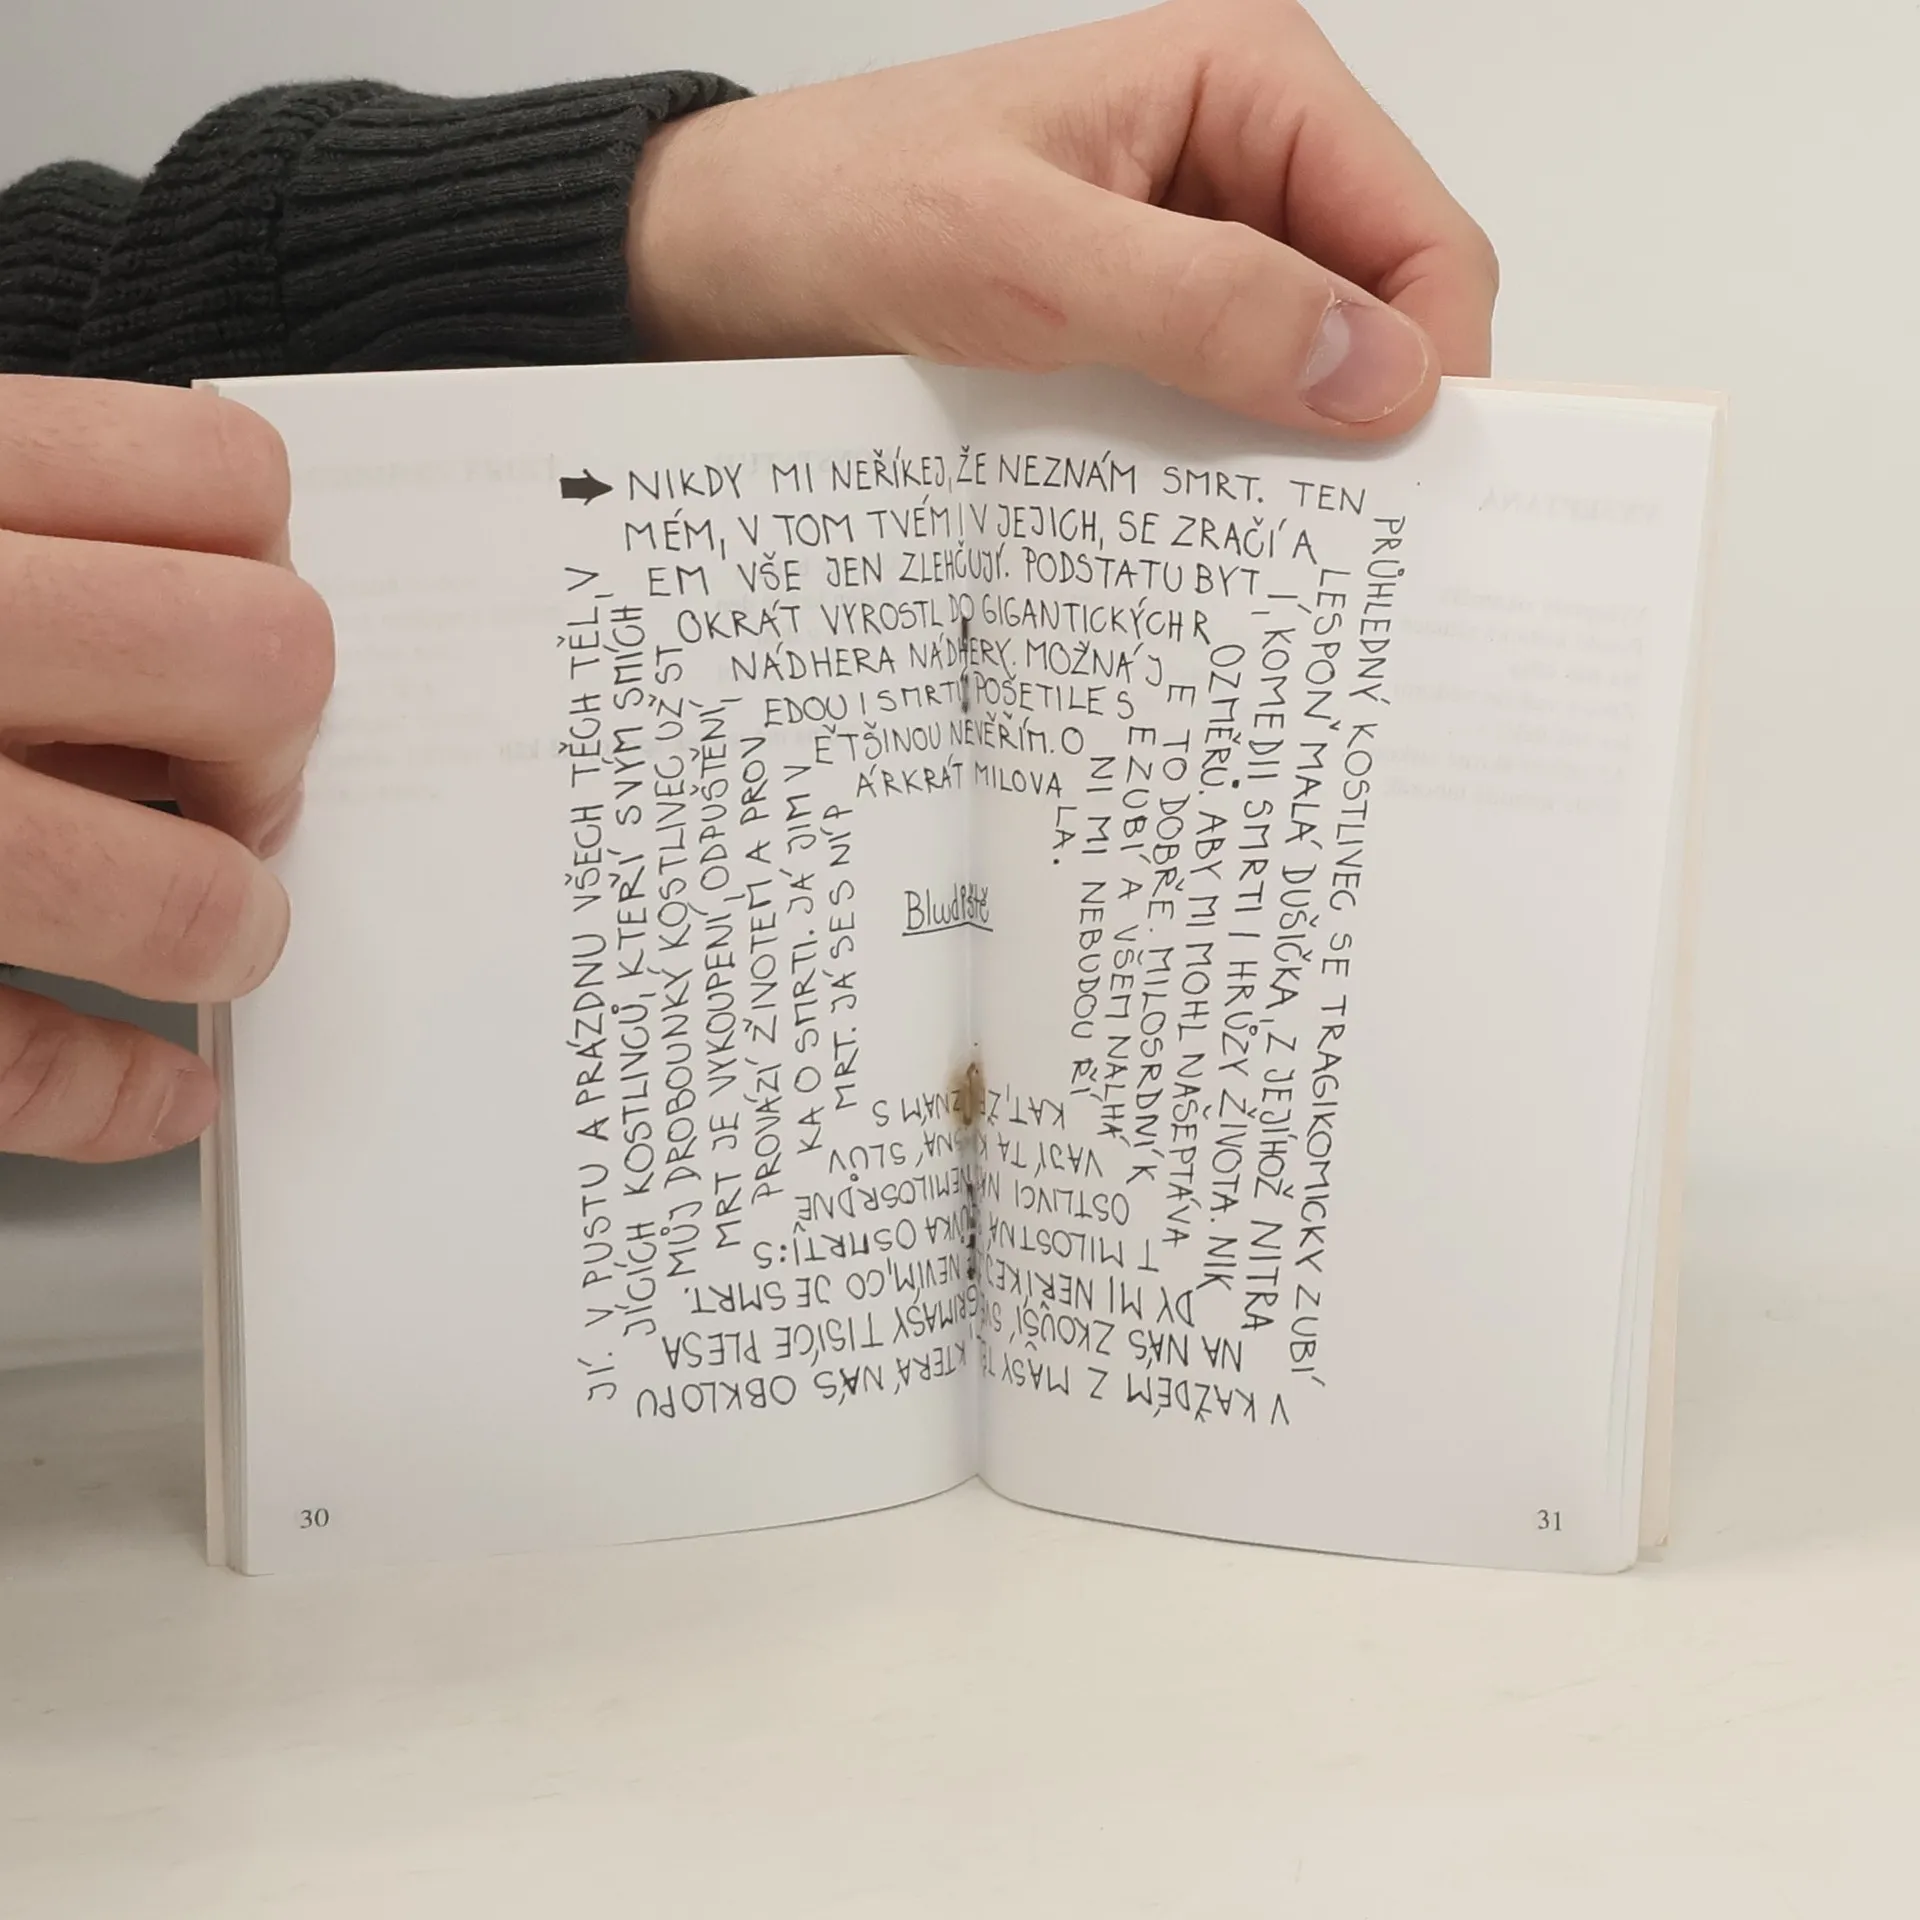 NIKDY MI NEŘÍKEJ, ŽE NEZNÁM SMRT. TEN
PRŮHLEDNÝ KOSTLIVEC SE TRAGIKOMICKY ZUBÍ
V KAŽDÉM Z MASY KTERÁ NÁS OBKLOPU
JÍ. V PUSTU A PRÁZDNU VŠECH TĚCH TĚL, V
MÉM, V TOM TVÉM I V JEJICH, SE ZRAČÍ A
LESPOŇ MALÁ DUŠIČKA, Z JEJÍHOŽ NITRA
NA NÁS ZKOUŠÍ SVÉ GRIMASY TISÍCE PLESA
JÍCÍCH KOSTLIVCŮ, KTEŘÍ SVÝM SMÍCH
EM VŠE JEN ZLEHČUJÍ. PODSTATU BYT
Í, KOMEDII SMRTI I HRŮZY ŽIVOTA. NIK
DY MI NEŘÍKEJ, NEVÍM, CO JE SMRT.
MŮJ DROBOUNKÝ KOSTLIVEC UŽ ST
OKRÁT VYROSTL DO GIGANTICKÝCH R
OZMĚRŮ. ABY MI MOHL NAŠEPTÁVA
T MILOSTNÁ SLŮVKA O SMRTI: S
MRT JE VYKOUPENÍ, ODPUŠTĚNÍ,
NÁDHERA NÁDHERY. MOŽNÁ J
E TO DOBŘE. MILOSRDNÍ K
OSTLIVCI NÁS NEMILOSRDNĚ
PROVÁZÍ ŽIVOTEM A PROV
EDOU I SMRTÍ. POŠETILE S
E ZUBÍ A VŠEM NALHÁ
VAJÍ TA KRÁSNÁ SLŮV
KA O SMRTI. JÁ JIM V
ĚTŠINOU NEVĚŘÍM. O
NI MI NEBUDOU ŘÍ
KAT, ŽE NEZNÁM S
MRT. JÁ SE S NÍ P
ÁRKRÁT MILOVA
LA.
Bludiště
30
31